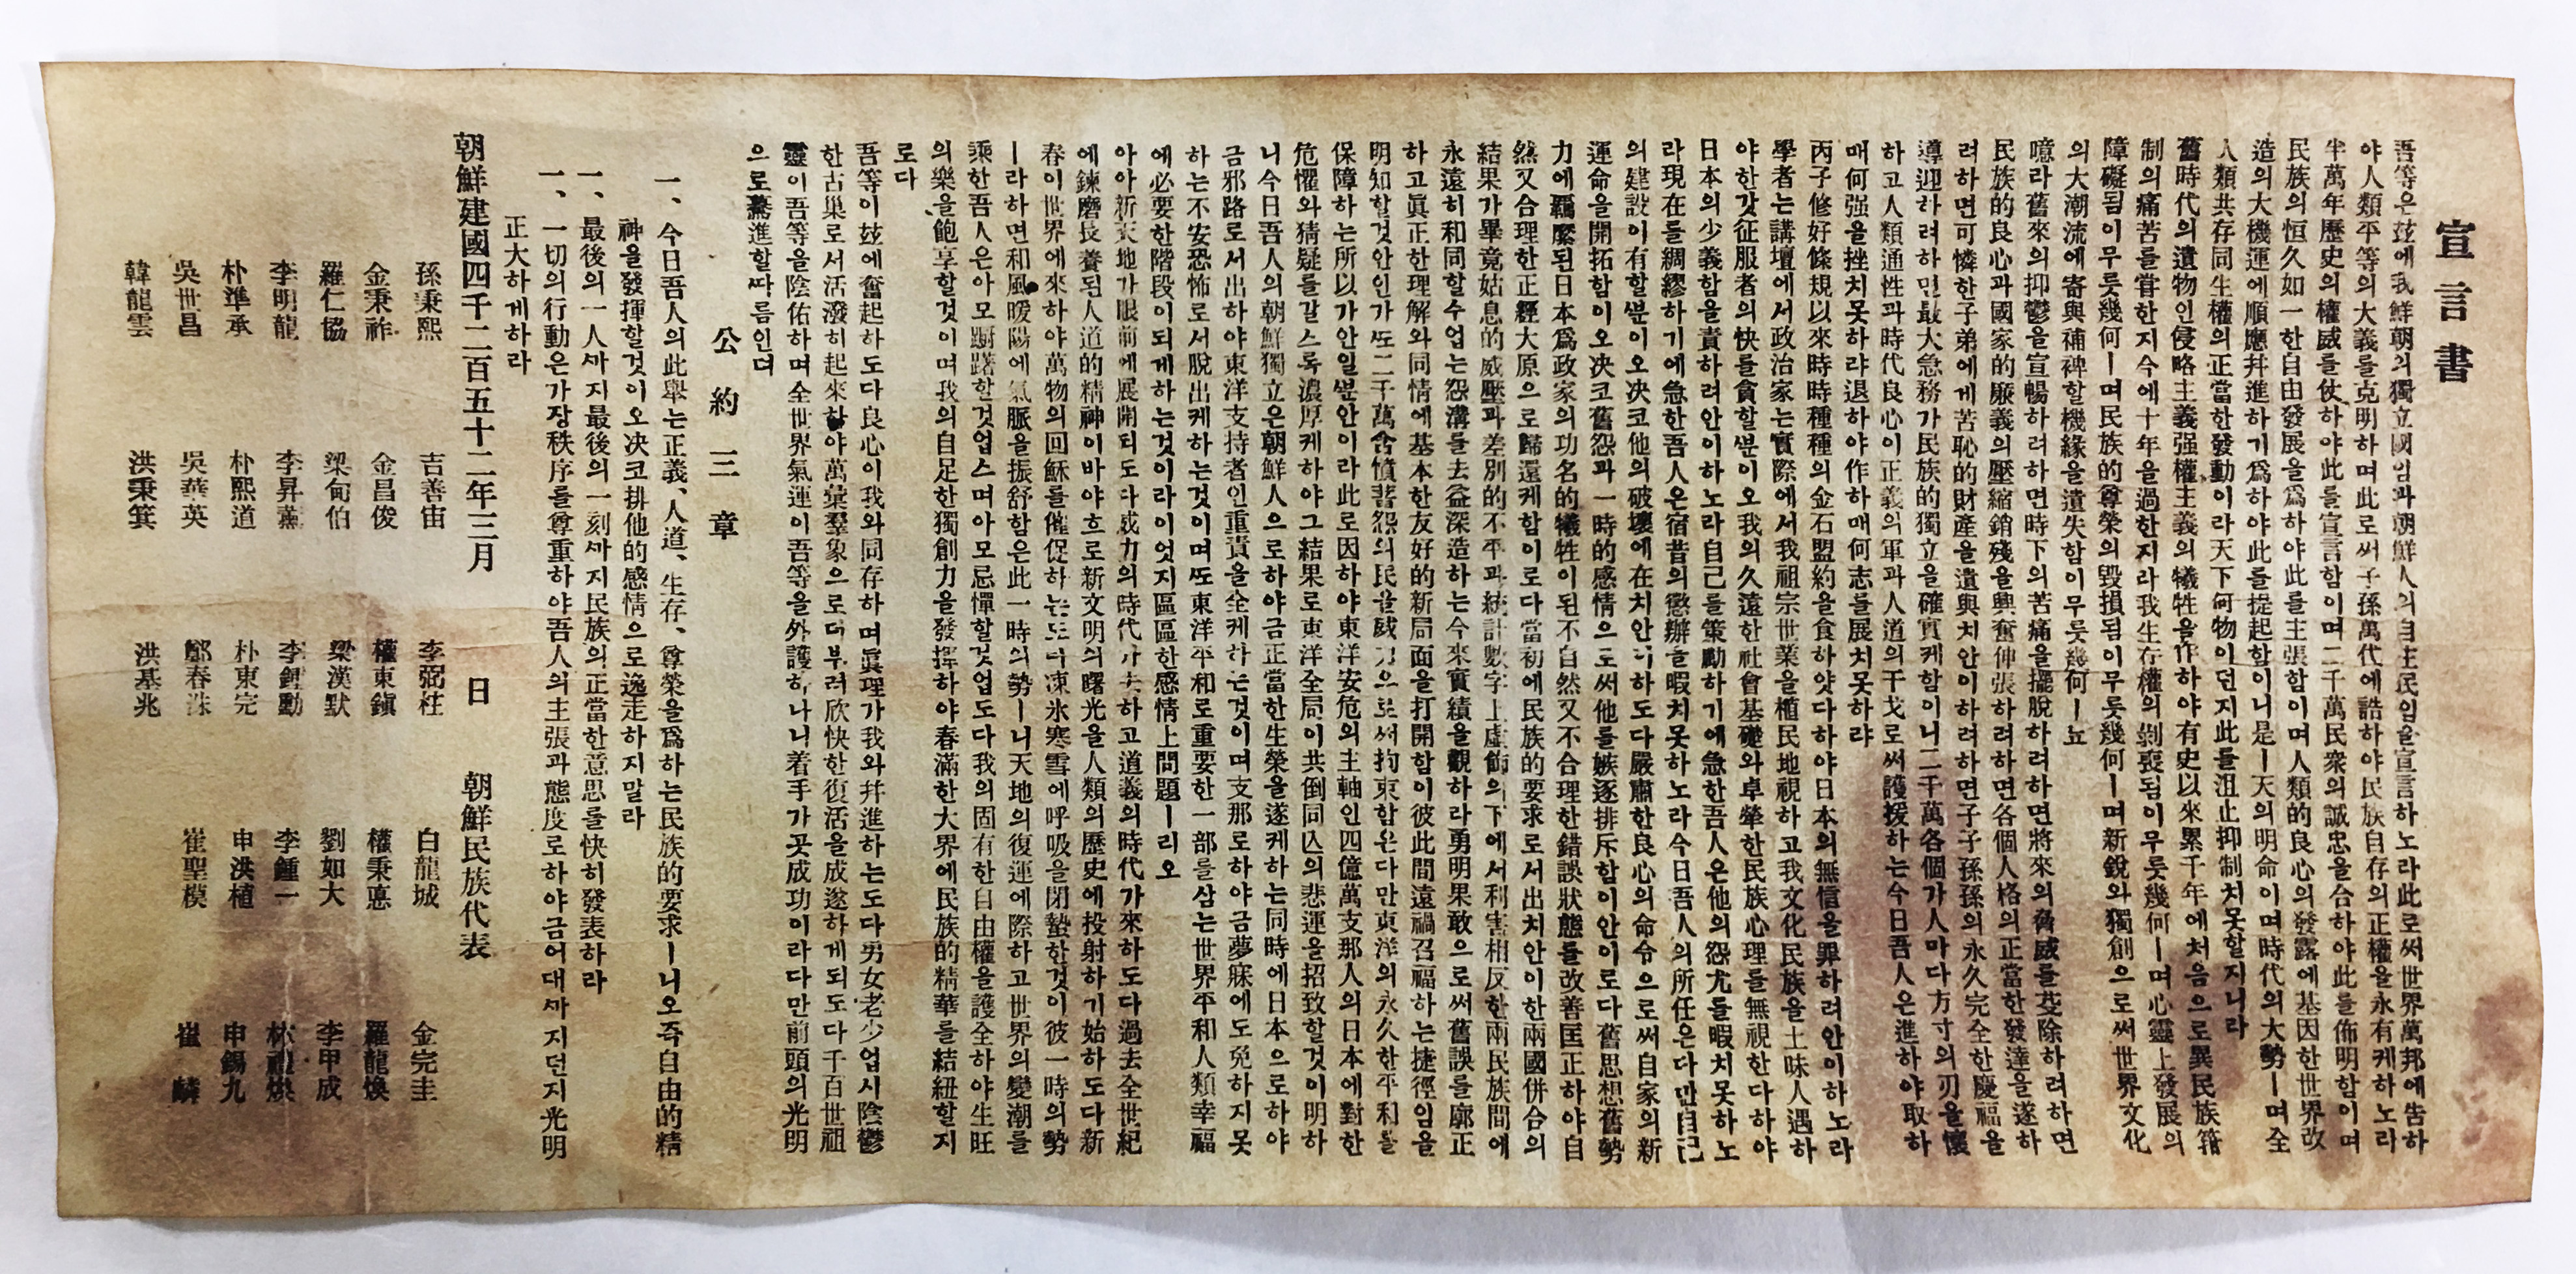 宣言書
吾等은玆에我鮮朝의獨立國임과朝鮮人의自主民임을宣言하노라此로써世界萬邦에告하
야人類平等의大義를克明하며此로써子孫萬代에誥하야民族自存의正權을永有케하노라
半萬年歷史의權威를仗하야此를宣言함이며二千萬民衆의誠忠을合하야此를佈明함이며
民族의恒久如一한自由發展을爲하야此를主張함이며人類的良心의發露에基因한世界改
造의大機運에順應幷進하기爲하야此를提起함이니是ㅣ天의明命이며時代의大勢ㅣ며全
人類共存同生權의正當한發動이라天下何物이던지此를沮止抑制치못할지니라
舊時代의遺物인侵略主義强權主義의犧牲을作하야有史以來累千年에처음으로異民族箝
制의痛苦를嘗한지今에十年을過한지라我生存權의剝喪됨이무릇幾何ㅣ며心靈上發展의
障礙됨이무릇幾何ㅣ며民族的尊榮의毁損됨이무릇幾何ㅣ며新銳와獨創으로써世界文化
의大潮流에寄與補裨할機緣을遺失함이무릇幾何ㅣ뇨
噫라舊來의抑鬱을宣暢하려하면時下의苦痛을擺脫하려하면將來의脅威를芟除하려하면
民族的良心과國家的廉義의壓縮銷殘을興奮伸張하려하면各個人格의正當한發達을遂하
려하면可憐한子弟에게苦恥的財產을遺與치안이하려하면子子孫孫의永久完全한慶福을
導迎하려하면最大急務가民族的獨立을確實케함이니二千萬各個가人마다方寸의刃을懷
하고人類通性과時代良心이正義의軍과人道의干戈로써護援하는今日吾人은進하야取하
매何强을挫치못하랴退하야作하매何志를展치못하랴
丙子修好條規以來時時種種의金石盟約을食하얏다하야日本의無信을罪하려안이하노라
學者는講壇에서政治家는實際에서我祖宗世業을植民地視하고我文化民族을土昧人遇하
야한갓征服者의快를貪할뿐이오我의久遠한社會基礎와卓犖한民族心理를無視한다하야
日本의少義함을責하려안이하노라自己를策勵하기에急한吾人은他의怨尤를暇치못하노
라現在를綢繆하기에急한吾人은宿昔의懲辦을暇치못하노라今日吾人의所任은다만自己
의建設이有할뿐이오決코他의破壞에在치안이하도다嚴肅한良心의命令으로써自家의新
運命을開拓함이오決코舊怨과一時的感情으로써他를嫉逐排斥함이안이로다舊思想舊勢
力에羈縻된日本爲政家의功名的犧牲이된不自然又不合理한錯誤狀態를改善匡正하야自
然又合理한正經大原으로歸還케함이로다當初에民族的要求로서出치안이한兩國併合의
結果가畢竟姑息的威壓과差別的不平과統計數字上虛飾의下에서利害相反한兩民族間에
永遠히和同할수업는怨溝를去益深造하는今來實績을觀하라勇明果敢으로써舊誤를廓正
하고眞正한理解와同情에基本한友好的新局面을打開함이彼此間遠禍召福하는捷徑임을
明知할것안인가또二千萬含憤蓄怨의民을威力으로써拘束함은다만東洋의永久한平和를
保障하는所以가안일뿐안이라此로因하야東洋安危의主軸인四億萬支那人의日本에對한
危懼와猜疑를갈스록濃厚케하야그結果로東洋全局이共倒同亾의悲運을招致할것이明하
니今日吾人의朝鮮獨立은朝鮮人으로하야금正當한生榮을遂케하는同時에日本으로하야
금邪路로서出하야東洋支持者인重責을全케하는것이며支那로하야금夢寐에도免하지못
하는不安恐怖로서脫出케하는것이며또東洋平和로重要한一部를삼는世界平和人類幸福
에必要한階段이되게하는것이라이엇지區區한感情上問題ㅣ리오
아아新天地가眼前에展開되도다威力의時代가去하고道義의時代가來하도다過去全世紀
에鍊磨長養된人道的精神이바야흐로新文明의曙光을人類의歷史에投射하기始하도다新
春이世界에來하야萬物의回穌를催促하는도다凍氷寒雪에呼吸을閉蟄한것이彼一時의勢
ㅣ라하면和風暖陽에氣脈을振舒함은此一時의勢ㅣ니天地의復運에際하고世界의變潮를
乘한吾人은아모躕躇할것업스며아모忌憚할것업도다我의固有한自由權을護全하야生旺
의樂을飽享할것이며我의自足한獨創力을發揮하야春滿한大界에民族的精華를結紐할지
로다
吾等이玆에奮起하도다良心이我와同存하며眞理가我와幷進하는도다男女老少업시陰鬱
한古巢로서活潑히起來하야萬彙羣象으로더부러欣快한復活을成遂하게되도다千百世祖
靈이吾等을陰佑하며全世界氣運이吾等을外護하나니着手가곳成功이라다만前頭의光明
으로驀進할따름인뎌
公約三章
一、今日吾人의此擧는正義、人道、生存、尊榮을爲하는民族的要求ㅣ니오즉自由的精
神을發揮할것이오決코排他的感情으로逸走하지말라
一、最後의一人까지最後의一刻까지民族의正當한意思를快히發表하라
一、一切의行動은가장秩序를尊重하야吾人의主張과態度로하야금어대까지던지光明
正大하게하라
朝鮮建國四千二百五十二年三月 日 朝鮮民族代表
孫秉熙 吉善宙 李弼柱 白龍城 金完圭
金秉祚 金昌俊 權東鎭 權秉悳 羅龍煥
羅仁協 梁甸伯 梁漢默 劉如大 李甲成
李明龍 李昇薰 李鍾勳 李鍾一 林禮煥
朴準承 朴熙道 朴東完 申洪植 申錫九
吳世昌 吳華英 鄭春洙 崔聖模 崔麟
韓龍雲 洪秉箕 洪基兆